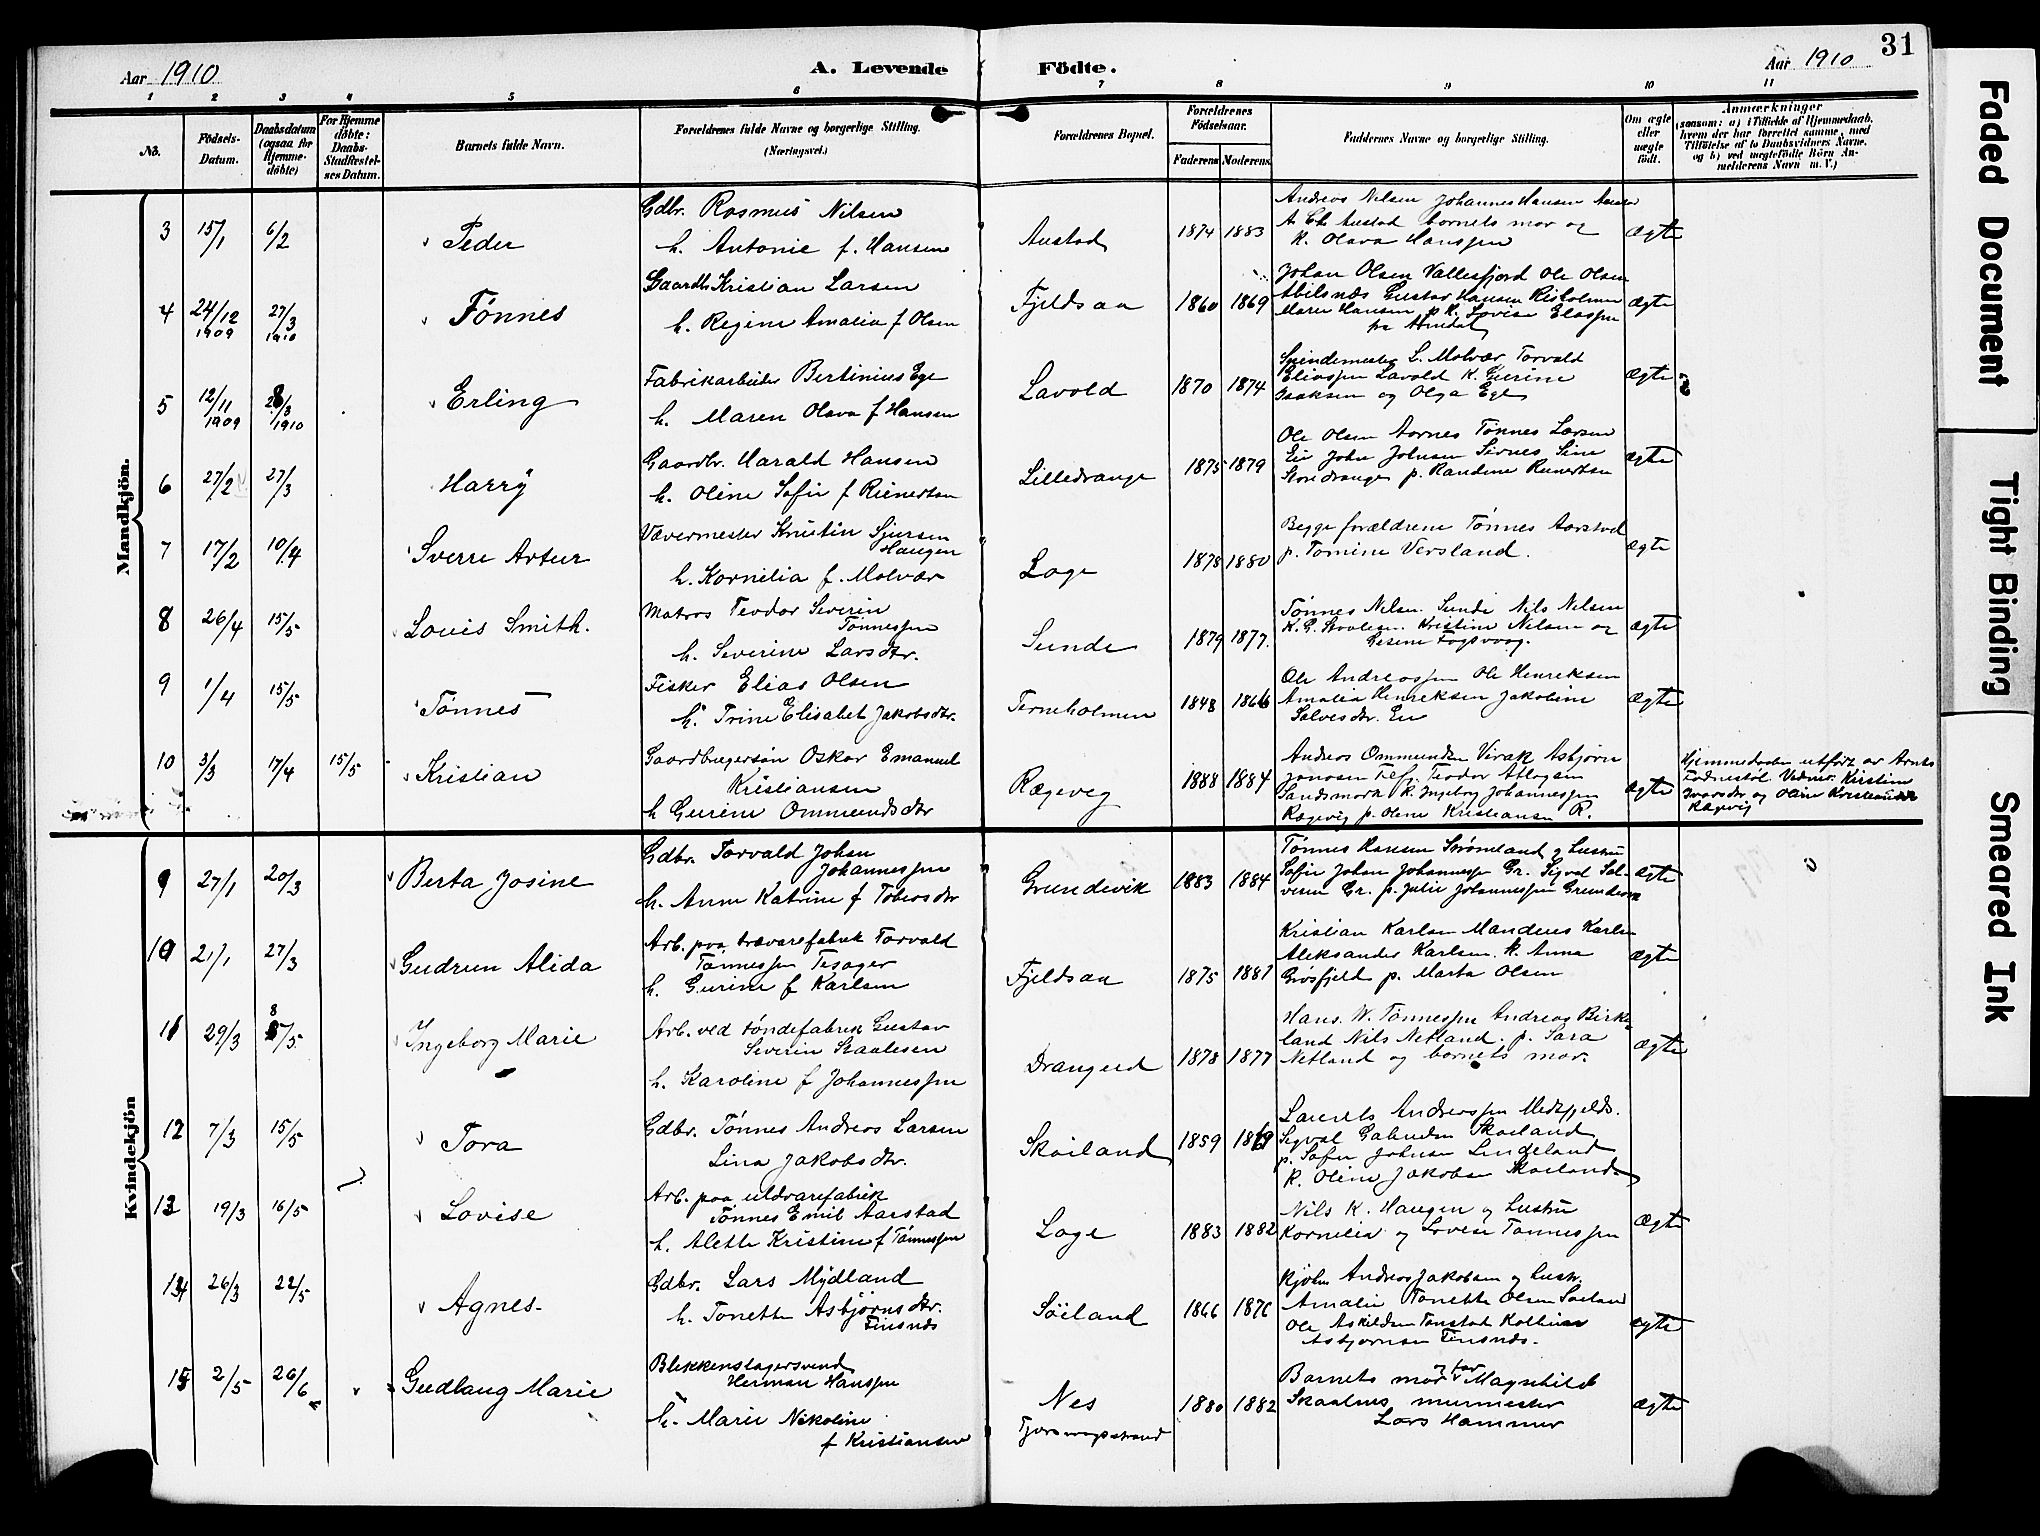 Aar 1910
A. Levende
Födte.
Aar 1910
31
1 2 3 4 5 6 7 8 9 10 11
No.
Födsels-
Datum.
Daabsdatum
(ogsaa for
Hjemme-
döbte)
For Hjemme
döbte:
Daabs-
Stadfæstel-
ses Datum.
Barnets fulde Navn.
Forældrenes fulde Navne og borgerlige Stilling.
(Næringsvei.)
Forældrenes Bopæl.
Forældrenes
Födselsaar.
Faderens
Moderens
Faddernes Navne og borgerlige Stilling.
Om ægte
eller
uægte
födt.
Anmærkninger
(saasom: a) i Tilfælde af Hjemmedaab,
hvem der har forrettet samme, med
Tilföielse af to Daabsvidners Navne,
og b) ved uægtefödte Börn An-
melderens Navn m. V.)
Mandkjön.
3 15/1 6/2 Peder
Gdbr. Rasmus Nilsen
h. Antonie f. Hansen
Austad 1874 1883
Andreas Nilsen Johannes Hansen
A. Chr. Austad barnets mor og
K. Olava Hanssen
Ægte
4 24/12 1909 27/3 1910 Tønnes
Gaardb. Kristian Larsen
h. Regine Amalia f Olsen
Fjeldsaa 1860 1869
Johan Olsen Vallesfjord Ole Olsen
Abilsnæs Gustav Hansen Risholmen
Maren Hansen p. K. Lovise Eliassen
fra Arnedal
Ægte
5 12/11 1909 28/3 1910 Erling
Fabrikarbeider Bertinius Ege
h. Maren Olava f Hansen
Lavold 1870 1874
Spindemester L. Molvær Torvald
Eliassen Lavold K. Gurine
Isaksen og Olga Ege
Ægte
6 27/2 27/3 Harry
Gaardbr. Harald Hansen
h. Oline Sofie f Reinertsen
Lilledrange 1875 1879
Ole Olsen Aarnes Tønnes Larsen
Eie John Johnsen Sirnes Sine
Storedrange p. Randine Reinertsen
Ægte
7 17/2 10/4 Sverre Artur
Vævermester Kristin Sjursen
Haugen
h. Kornelia f. Molvær
Loge 1878 1880
Begge forældrene Tønnes Aarstad
p. Tomine Versland.
Ægte
8 26/4 15/5 Louis Smith.
Matros Teodor Severin
Tønnessen
h. Severine Larsdtr.
Sunde 1879 1877.
Tønnes Nilsen Sunde Nils Nilsen
K. G. Staalesen Kristine Nilsen og
Gesine Fogsvaag.
Ægte
9 1/4 15/5 Tønnes
Fisker Elias Olsen
h. Trine Elisabet Jakobsdtr.
Terneholmen 1848 1866
Ole Andreassen Ole Henriksen
Amalia Henriksen Jakobine
Salvesdtr. Eie
Ægte
10 3/3 17/4 15/5 Kristian
Gaardbrugersøn Oskar Emanuel
Kristiansen
h Gurine Ommundsdtr
Rægevig 1888 1884
Andreas Ommundsen Virak Asbjørn
Jonasen Teodor Atlogsen
Sandsmark K. Ingeborg Johannessen
Rægevig p. Oline Kristiansen R.
Ægte
Hjemmedaaben utført av Arnts
Vidner: Kirstine
Ivarsdtr og Oline Kristiansen
Rægevig
Kvindekjön
9 27/1 20/3 Berta Josine
Gdbr. Torvald Johan
Johannessen
h. Anne Katrine f Tobiasdtr
Grundevik 1883 1884
Tønnes Hansen Strømland og hustru
Sofie Johan Johannessen Gr. Sigval Sal-
vesen Gr. p. Julie Johannessen Grundevik
Ægte
10 21/1 27/3 Gudrun Alida
Arb. paa trævarefabrik Torvald
Tønnessen Tesager
h. Gurine f Karlsen
Fjeldsaa 1875 1881
Kristian Karlsen Mandeus Karlsen
Aleksander Karlsen K. Anna
Grøsfjeld p. Marta Olsen
Ægte
11 29/3 8/5 Ingeborg Marie
Arb. ved tøndefabrik Gustav
Severin Staalesen
h. Karoline f Johannessen
Drangeid 1878 1877
Hans W. Tønnessen Andreas Birke-
land Nils Netland. p. Sara
Netland og barnets mor.
Ægte
12 7/3 15/5 Tora
Gdbr. Tønnes Andreas Larsen
Lina Jakobsdtr.
Skoiland 1859 1869
Laurits Andreassen Midtfjelds.
Sigval Gabrielsen Skoiland
p. Sofie Johnsen Lindeland
K. Oline Jakobsen Skoiland
13 19/3 16/5 Lovise
Arb. paa uldvarefabrik
Tønnes Emil Aarstad
h. Alette Kristine f Tønnessen
Loge 1883 1882
Nils K. Haugen og hustru
Kornelia og Lovise Tønnessen
Ægte
14 26/3 22/5 Agnes-
Gdbr. Lars Mydland
h. Tonette Asbjørnsdtr.
Finsnæs
Söiland 1866 1876
Kjøbm Andreas Jakobsen og hustr.
Amalie Tonette Olsen Søiland
Ole Askildsen Tonstad Kathrine
Asbjørnsen Finsnæs.
Ægte
15 2/5 26/6 Gudlaug Marie
Blikkenslagersvend
Herman Hanssen
h. Marie Nikoline
f Kristiansen
Nes 1880 1882
Barnets mor og far Magnhild
Skaalnes murmester
Lars Hammer
Ægte
Faded Document
Tight Binding
Smeared Ink